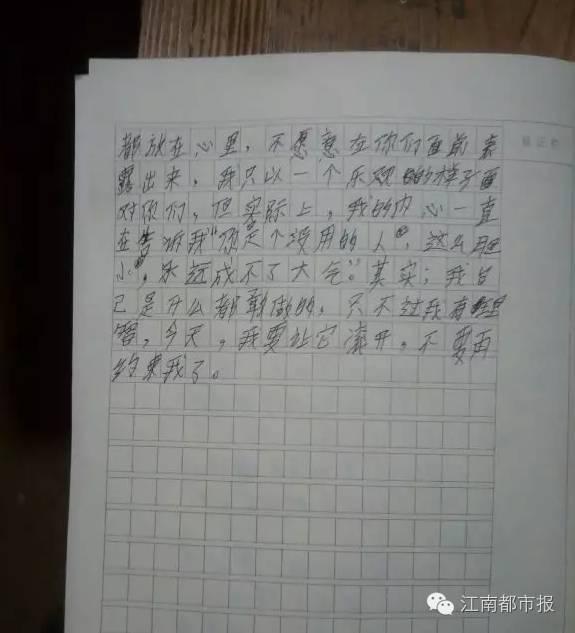 都放在心里，不愿意在你们面前表
露出来，我只以一个乐观的样子面
对你们，但实际上，我的内心一直
在告诉我“你是个没用的人”，这么胆
小，永远成不了大气。”其实；我自
己是什么都敢做的，只不过我有理
智，今天，我要让它滚开，不要再
约束我了。
江南都市报